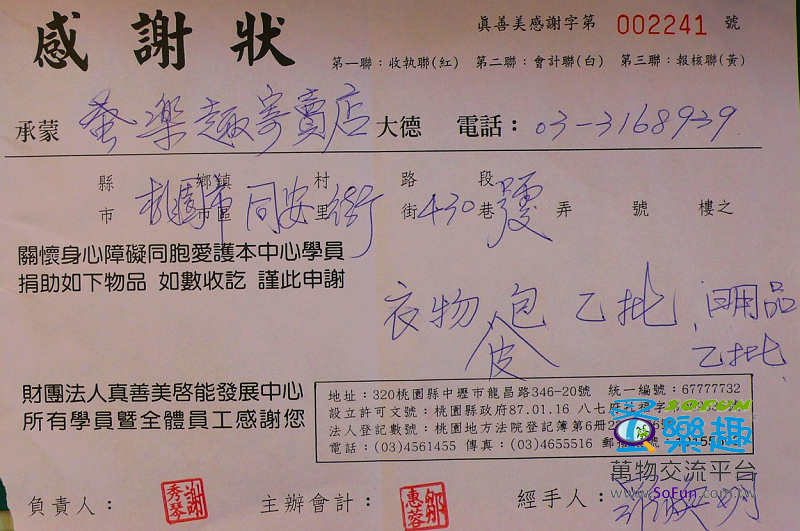 感謝狀
真善美感謝字第 002241 號
第一聯：收執聯(紅) 第二聯：會計聯(白) 第三聯：報核聯(黃)
承蒙 蚤樂趣寄賣店 大德 電話：03-3168939
縣 鄉鎮 村 路 段
市 桃園市 市區 同安 里 街 街 430 巷 號 弄 號 樓之
關懷身心障礙同胞愛護本中心學員
捐助如下物品 如數收訖 謹此申謝
衣物 包 乙批, 日用品
皮 乙批
財團法人真善美啓能發展中心
所有學員暨全體員工感謝您
地址：320桃園縣中壢市龍昌路346-20號 統一編號：67777732
設立許可文號：桃園縣政府87.01.16 八七
法人登記數號：桃園地方法院登記簿第6冊
電話：(03)4561455 傳真：(03)4655516
SOFUN
蚤樂趣
萬物交流平台
www.SoFun.com.tw
負責人： 謝秀琴
主辦會計： 鄒惠蓉
經手人：